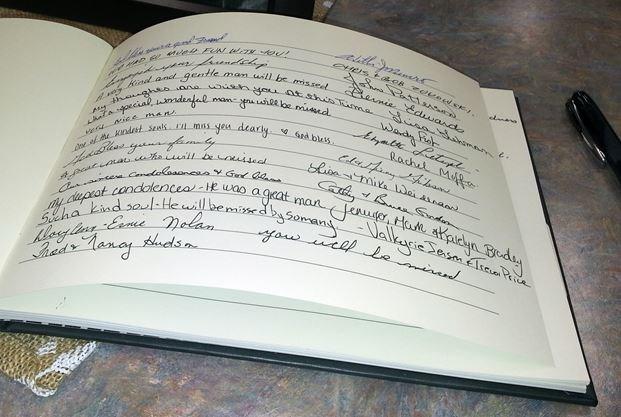 you a good friend
HAD SO MUCH FUN WITH YOU!
Enjoyed your friendship CHRIS & ZOKOWSKI
A very kind and gentle man will be missed John Patterson
My thoughts are with you at this time Edwards
What a special, wonderful man - you will be missed Lisa
very nice man. Wendy
One of the kindest souls. I'll miss you dearly ♡ God bless. Rachel Moffro
God Bless your family
A great man who will be missed
Our sincere condolences & God Bless Lisa & Mike
my deepest condolences - He was a great man Cathy & Bruce
Such a kind soul - He will be missed by so many - Jennifer, Mark & Katelyn Bradley
Daylen - Ernie Nolan Valkyrie Jenson & Trevor Price
Fred & Nancy Hudson you will be missed